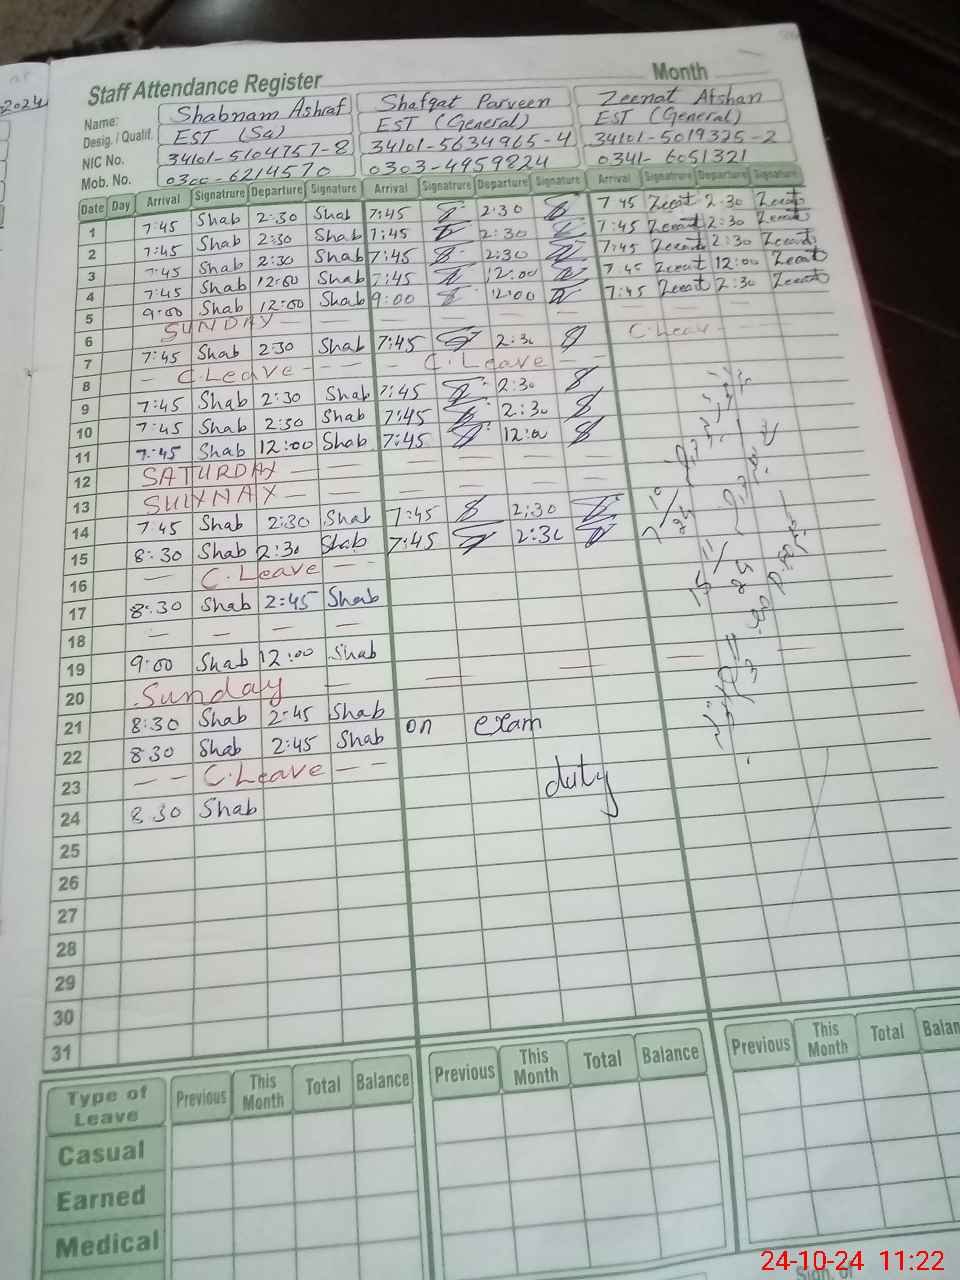 2024
Staff Attendance Register Month
Name: Shabnam Ashraf Shafqat Parveen Zeenat Afshan
Desig. / Qualif. EST (Sa) EST (General) EST (General)
NIC No. 34101-5104757-8 34101-5634965-4 34101-5019325-2
Mob. No. 0300-6214570 0303-4959824 0341-6051321
Date Day Arrival Signatrure Departure Signature Arrival Signatrure Departure Signature Arrival Signatrure Departure Signature
1 7:45 Shab 2:30 Shab 7:45 2:30 7 45 Zeenat 2:30 Zeenat
2 7:45 Shab 2:30 Shab 7:45 2:30 7:45 Zeenat 2:30 Zeenat
3 7:45 Shab 2:30 Shab 7:45 2:30 7:45 Zeenat 2:30 Zeenat
4 7:45 Shab 12:00 Shab 7:45 12:00 7:45 Zeenat 12:00 Zeenat
5 9:00 Shab 12:00 Shab 9:00 12:00 7:45 Zeenat 2:30 Zeenat
6 SUNDAY
7 7:45 Shab 2:30 Shab 7:45 2:30 C.Leave
8 C.Leave C.Leave
9 7:45 Shab 2:30 Shab 7:45 2:30
10 7:45 Shab 2:30 Shab 7:45 2:30
11 7:45 Shab 12:00 Shab 7:45 12:00
12 SATURDAY
13 SUNDAY
14 7:45 Shab 2:30 Shab 7:45 2:30
15 8:30 Shab 2:30 Shab 7:45 2:30
16 C.Leave
17 8:30 Shab 2:45 Shab
18
19 9:00 Shab 12:00 Shab
20 Sunday
21 8:30 Shab 2:45 Shab on exam
22 8:30 Shab 2:45 Shab
23 C.Leave duty
24 8:30 Shab
25
26
27
28
29
30
31
Type of Leave Previous This Month Total Balance Previous This Month Total Balance Previous This Month Total Balan
Casual
Earned
Medical
Sign. of
24-10-24 11:22